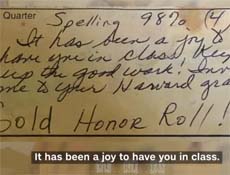 Quarter Spelling 98% (4)
It has been a joy to
have you in class! Keep
up the good work!
me to your Harvard gra
Gold Honor Roll!
It has been a joy to have you in class.